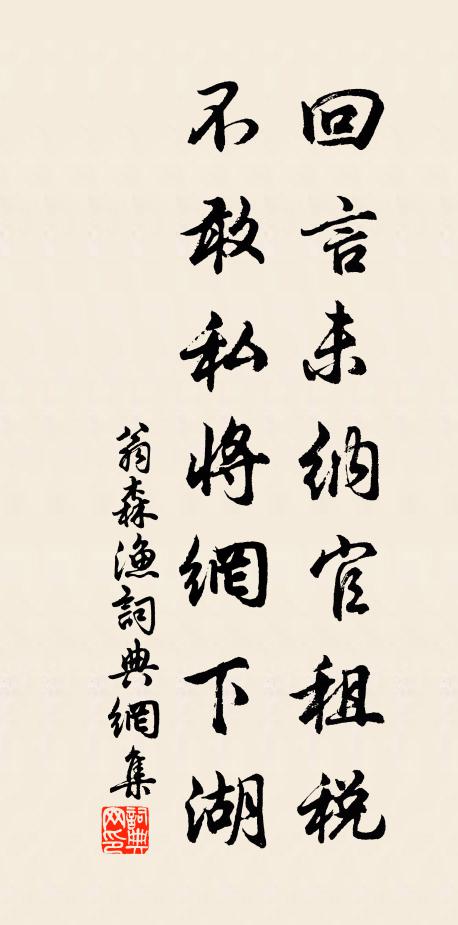 回言未納官租税
不敢私將網下湖
翁森漁詞典網集
詞典网印